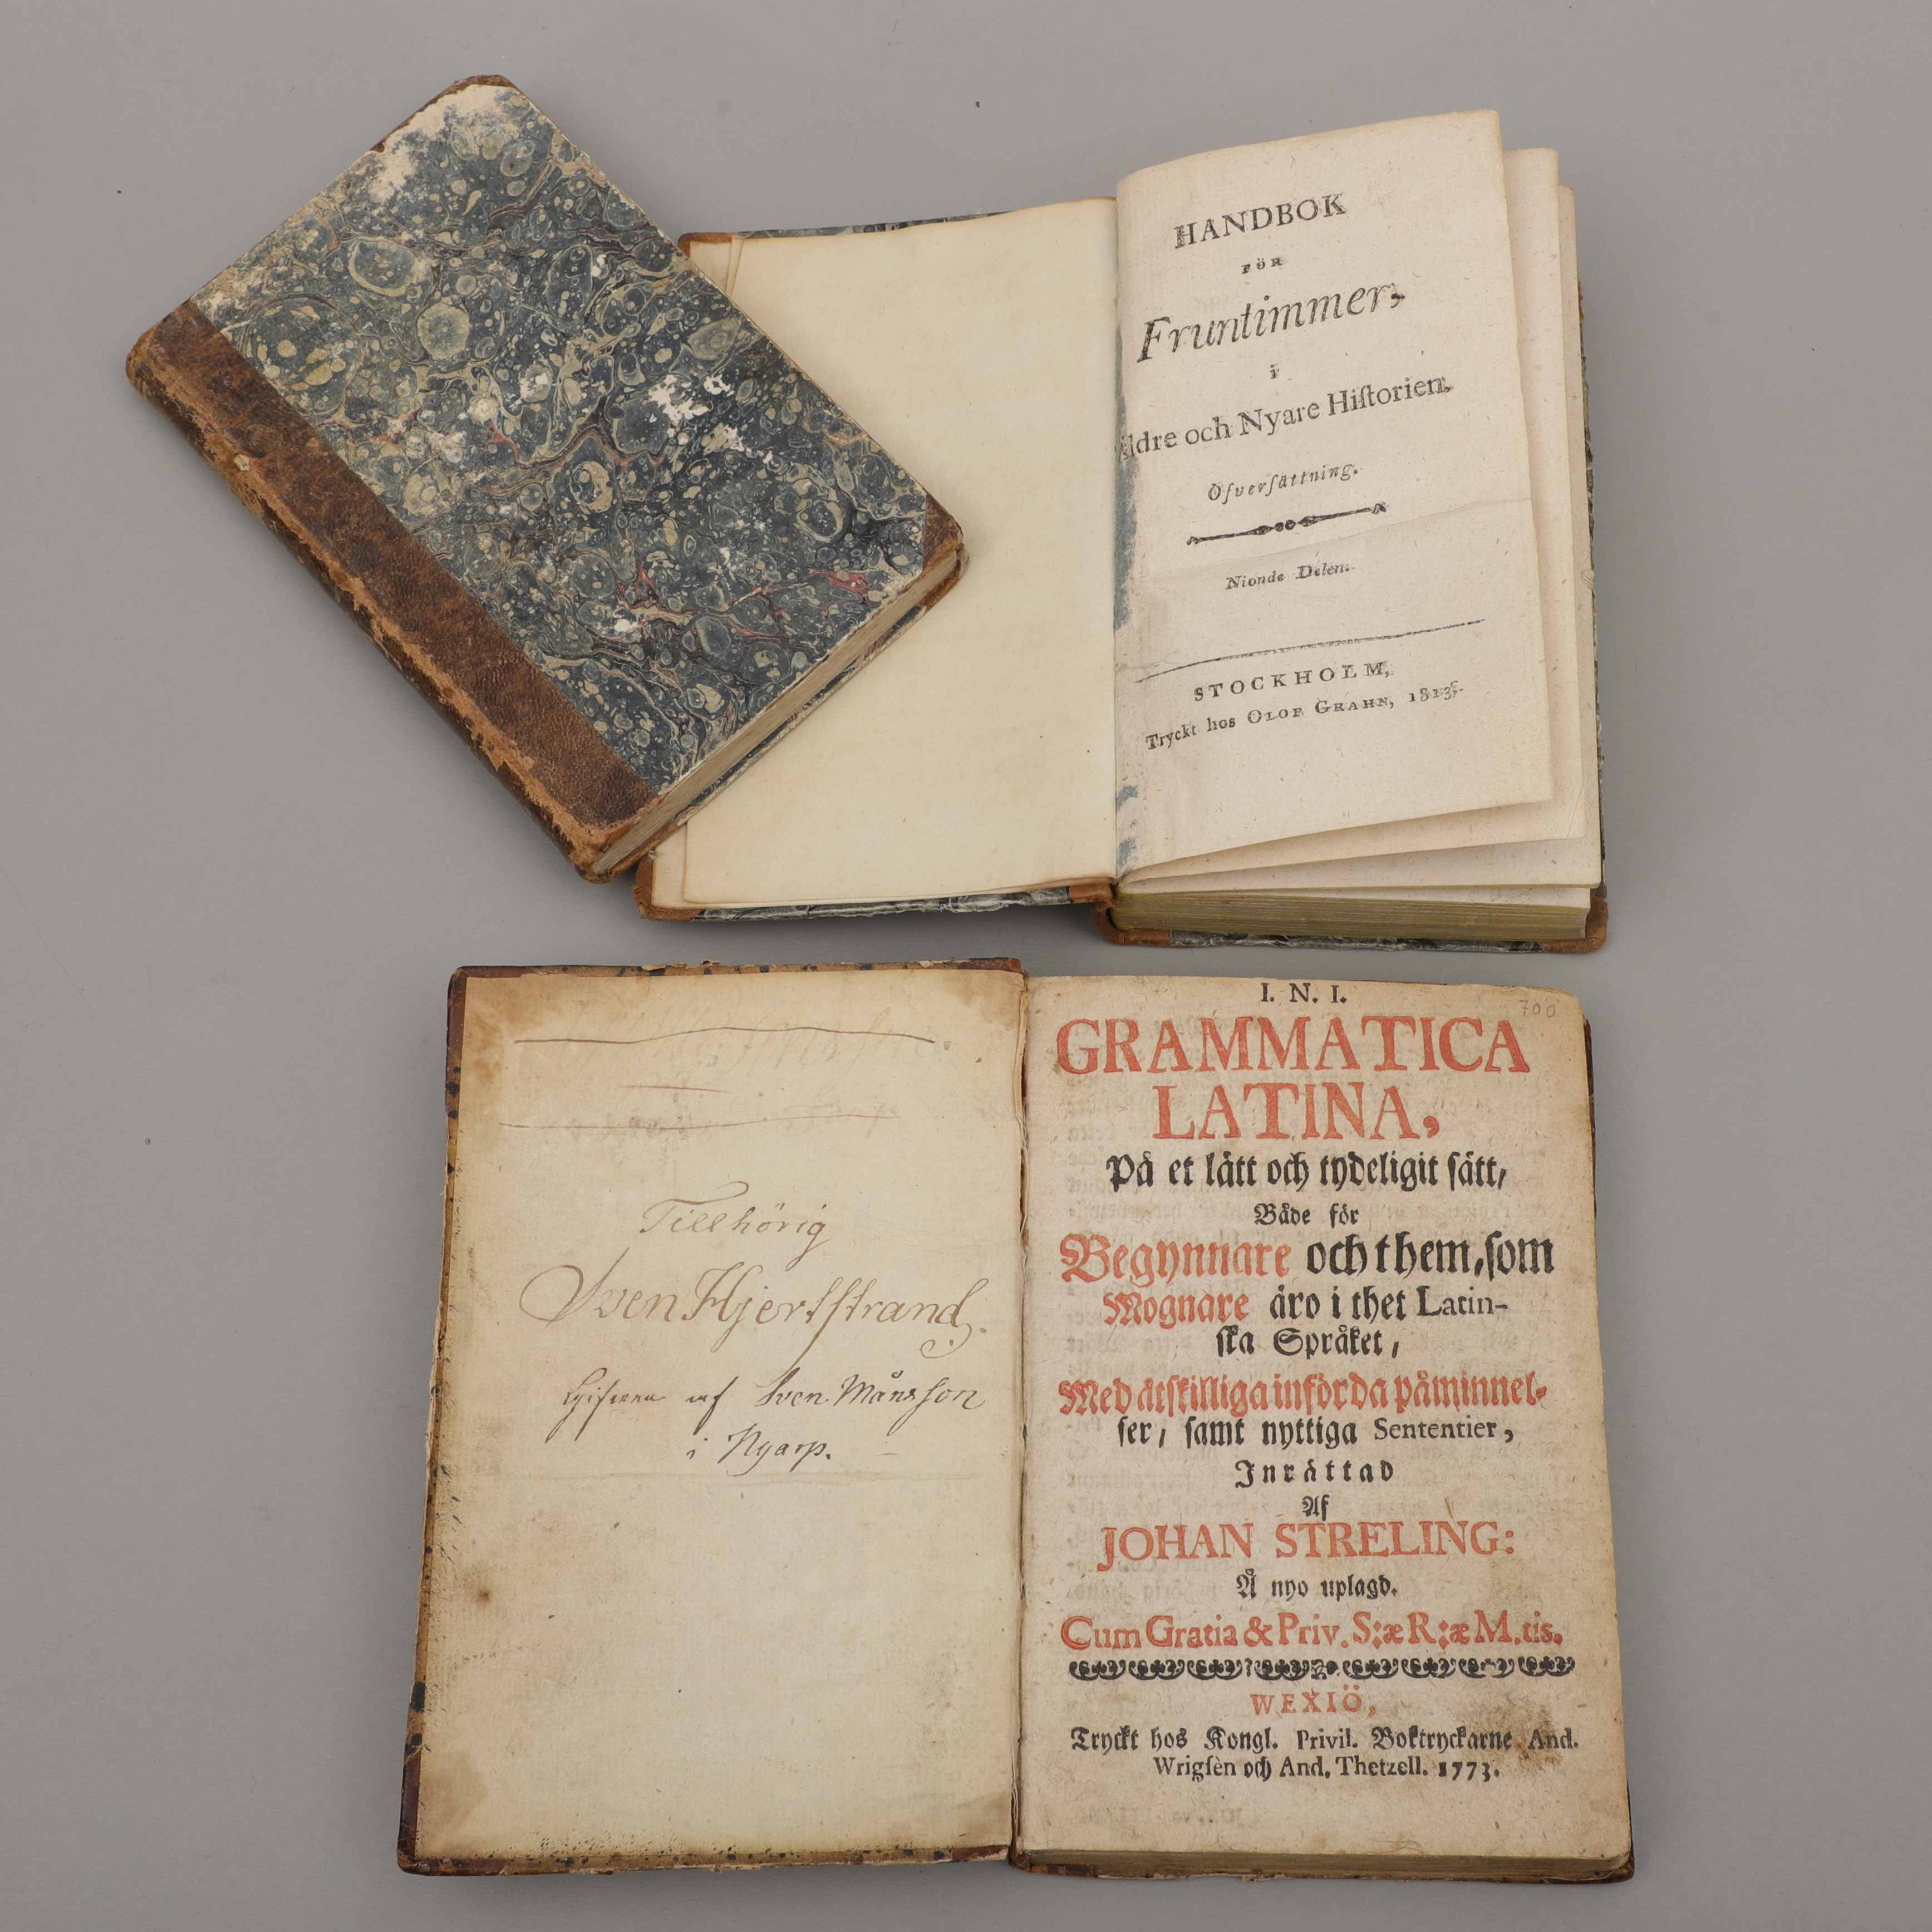 HANDBOK
FÖR
Fruntimmer,
i
Äldre och Nyare Hiſtorien.
Öfverſättning.
Nionde Delen.
STOCKHOLM,
Tryckt hos OLOF GRAHN, 1813.
Tillhörig
Sven Hjertſtrand.
af Sven Månsſon
i Nyarp.
I. N. I.
700
GRAMMATICA
LATINA,
På et lätt och tydeligit ſätt,
Både för
Begynnare och them, ſom
Mognare äro i thet Latin-
ſka Språket,
Med åtſkilliga införda påminnel-
ſer, ſamt nyttiga Sententier,
Inrättad
Af
JOHAN STRELING:
Å nyo uplagd.
Cum Gratia & Priv. S:æ R:æ M.tis.
WEXIÖ,
Tryckt hos Kongl. Privil. Boktryckarne And.
Wrigſèn och And. Thetzell. 1773.